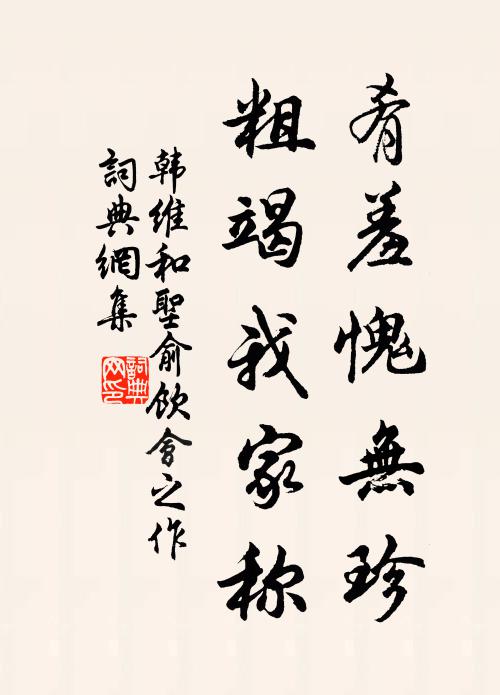 肴羞愧無珍
粗竭我家称
韩維和聖俞飲會之作
詞典網集
詞典網印